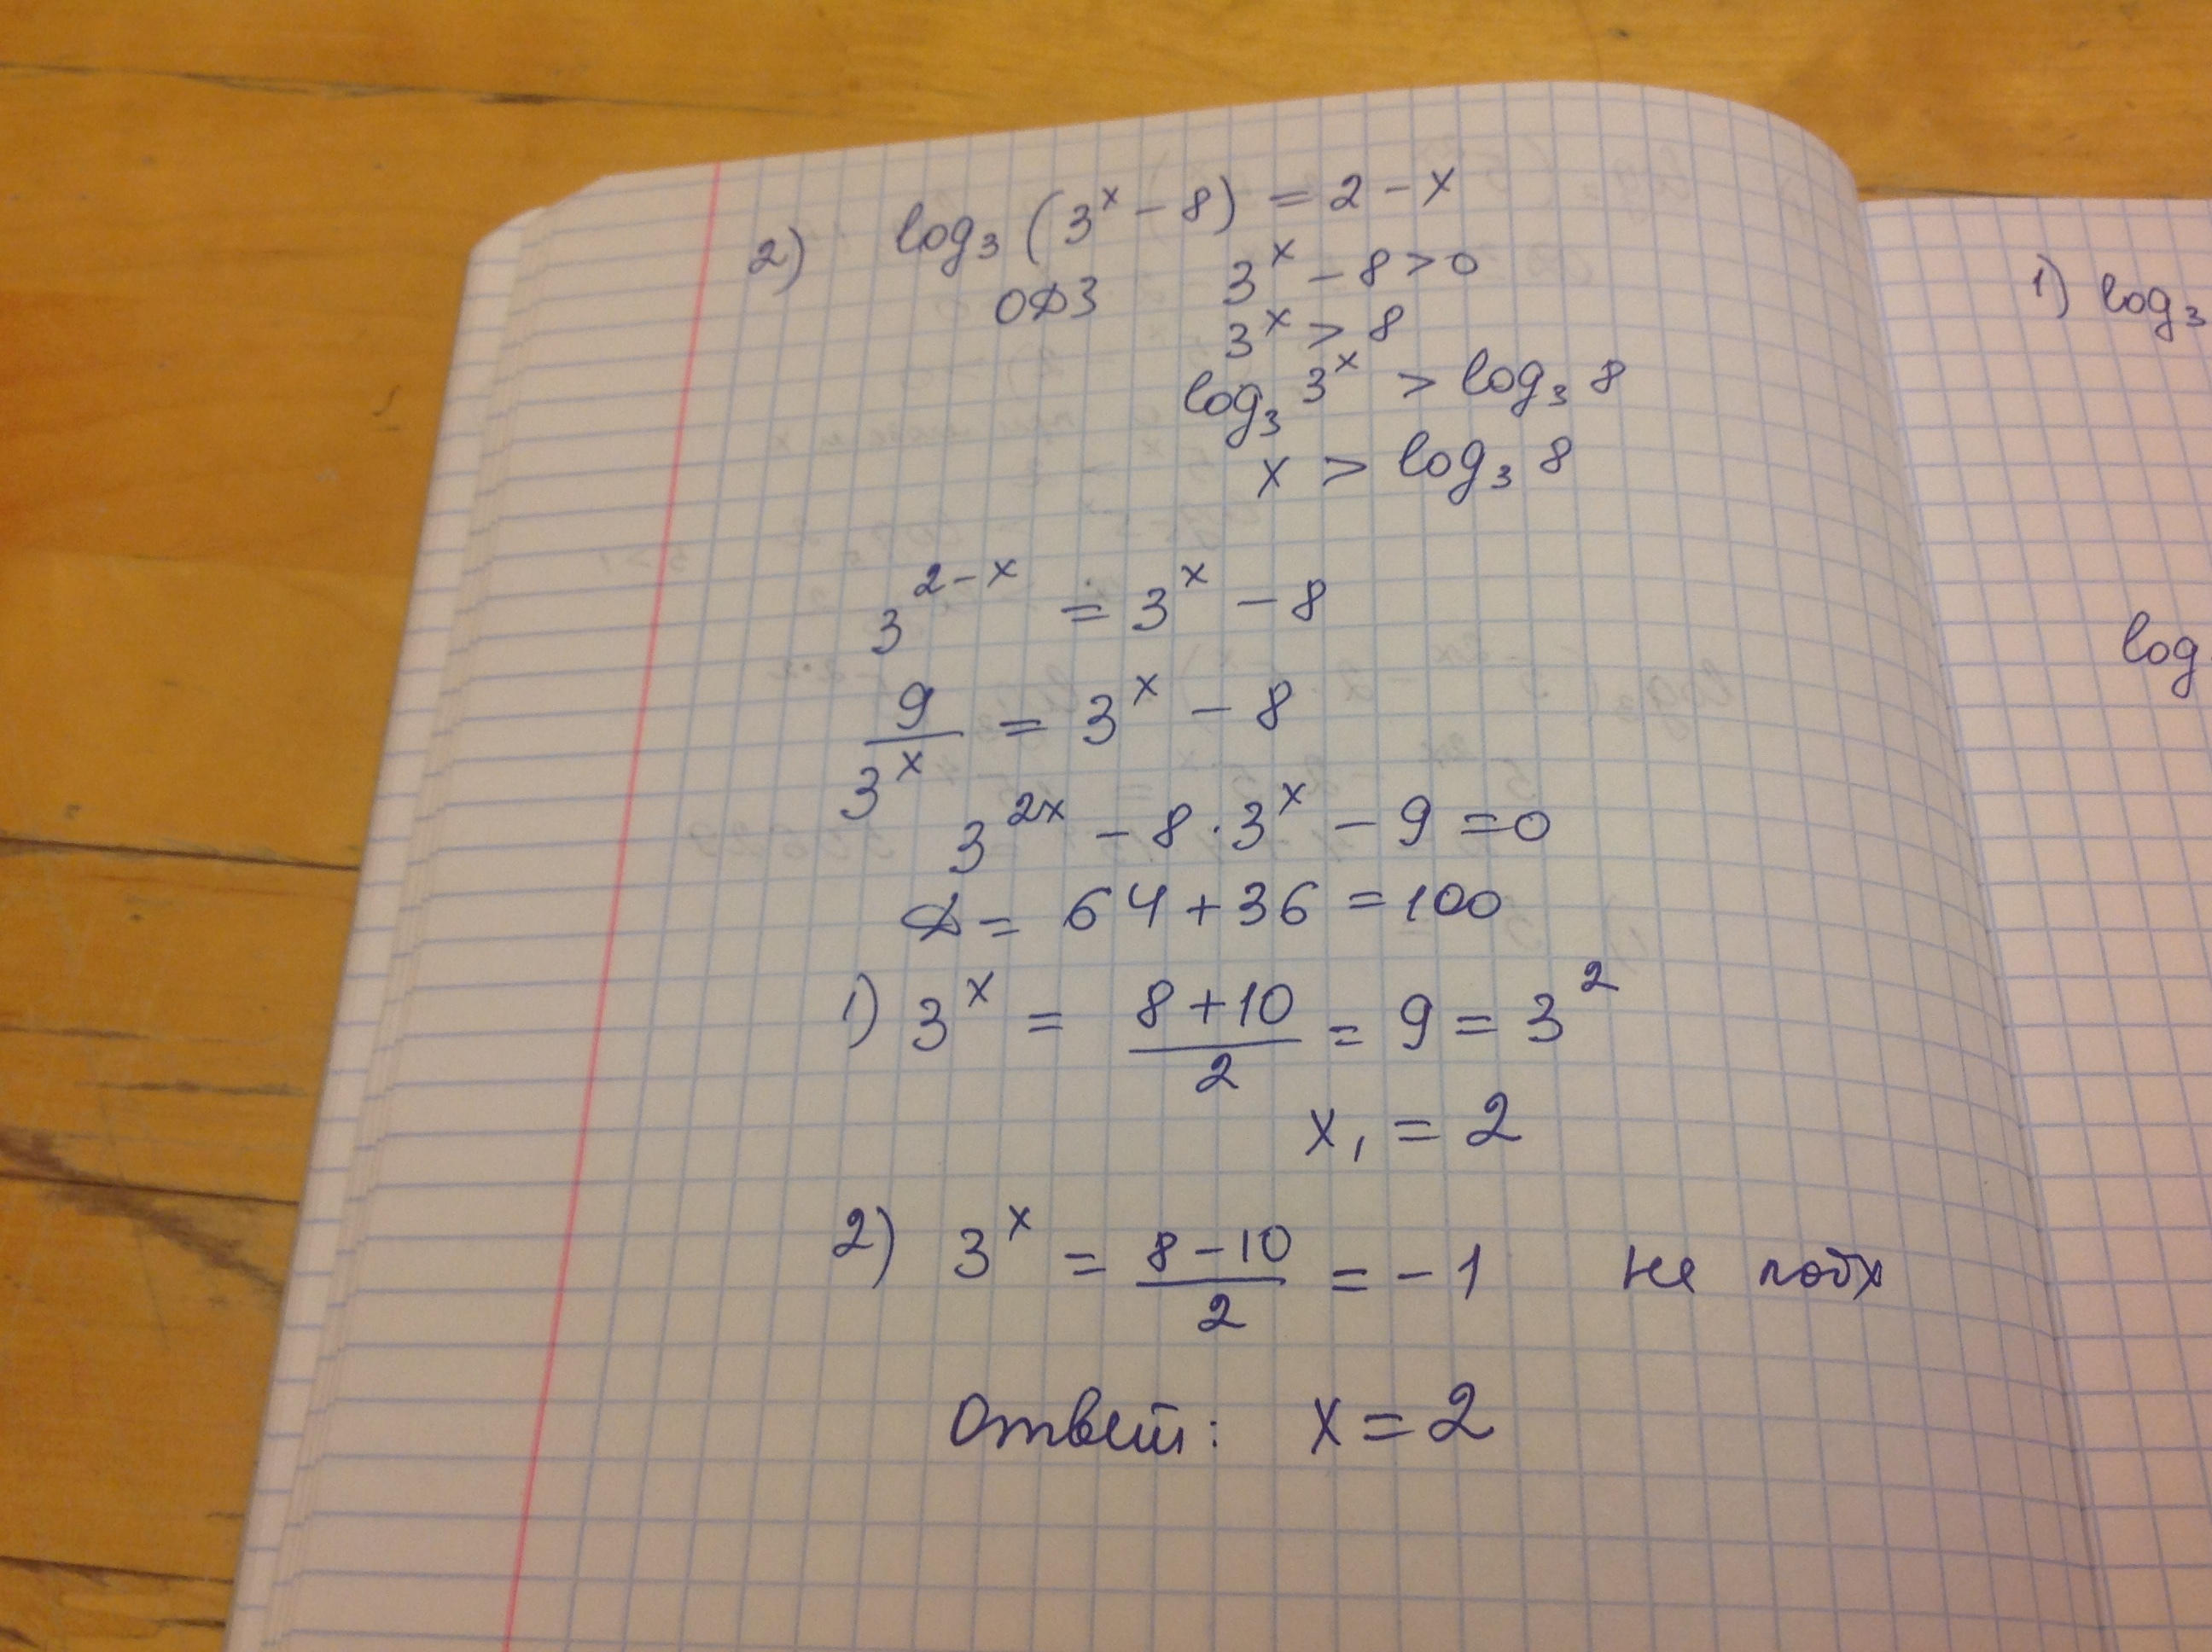 2) log₃ (3ˣ − 8) = 2 − x
ОДЗ 3ˣ − 8 > 0
3ˣ > 8
log₃ 3ˣ > log₃ 8
x > log₃ 8
3²⁻ˣ = 3ˣ − 8
9/3ˣ = 3ˣ − 8
3²ˣ − 8 · 3ˣ − 9 = 0
Д = 64 + 36 = 100
1) 3ˣ = (8 + 10)/2 = 9 = 3²
x₁ = 2
2) 3ˣ = (8 − 10)/2 = −1 не подх
Ответ: x = 2
1) log₃
log